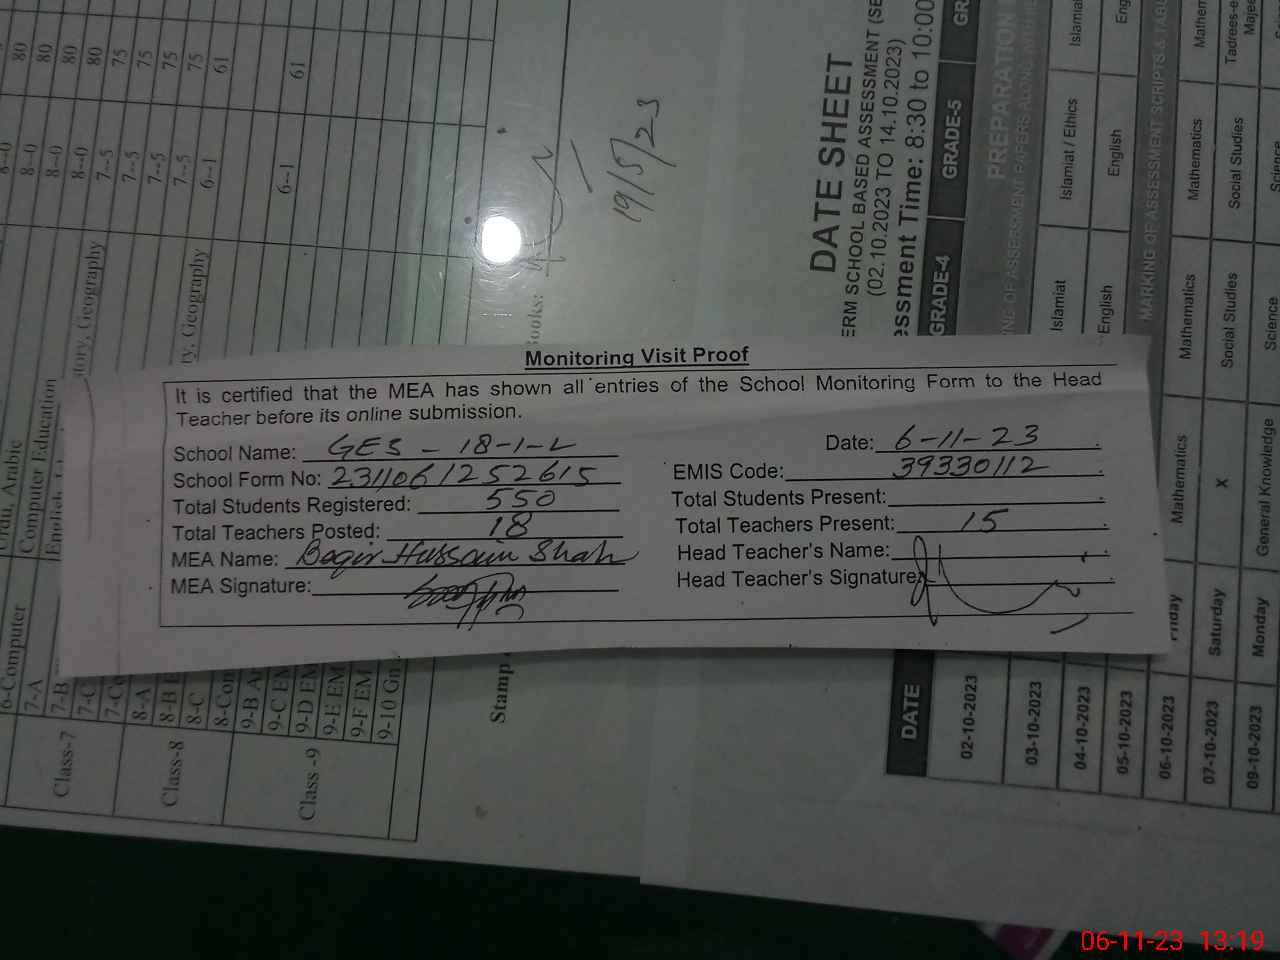 Monitoring Visit Proof
It is certified that the MEA has shown all entries of the School Monitoring Form to the Head
Teacher before its online submission.
School Name: GES - 18-1-L
Date: 6-11-23
School Form No: 2311061252615
EMIS Code: 39330112
Total Students Registered: 550
Total Students Present:
Total Teachers Posted: 18
Total Teachers Present: 15
MEA Name: Baqir Hussain Shah
Head Teacher's Name:
MEA Signature:
Head Teacher's Signature
80
80
80
80
75
75
75
75
61
61
8--0
8--0
8--0
8--0
7--5
7--5
7--5
7--5
6--1
6--1
story, Geography
ry, Geography
Urdu, Arabic
Computer Education
6-Computer
7-A
7-B
7-C
8-A
8-B
8-C
8-Com
9-B
9-C EM
9-D EM
9-E EM
9-F EM
9-10
Class-7
Class-8
Class -9
ooks:
Stamp
19/5/23
DATE SHEET
ERM SCHOOL BASED ASSESSMENT (SE
(02.10.2023 TO 14.10.2023)
essment Time: 8:30 to 10:00
DATE
GRADE-4
GRADE-5
GR
PREPARATION
OF ASSESSMENT PAPERS ALONG
02-10-2023
03-10-2023
Islamiat
Islamiat / Ethics
Islamiat
04-10-2023
English
English
Eng
05-10-2023
MARKING OF ASSESSMENT SCRIPTS & TABU
06-10-2023
Friday
Mathematics
Mathematics
Mathematics
Mathem
07-10-2023
Saturday
X
Social Studies
Social Studies
Tadrees-e
Maje
09-10-2023
Monday
General Knowledge
Science
Science
06-11-23 13:19